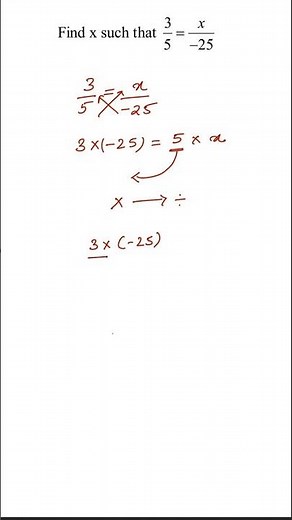 Find x such that 3/5 = x/-25
3/5 = x/-25
3×(-25) = 5 × x
× → ÷
3× (-25)